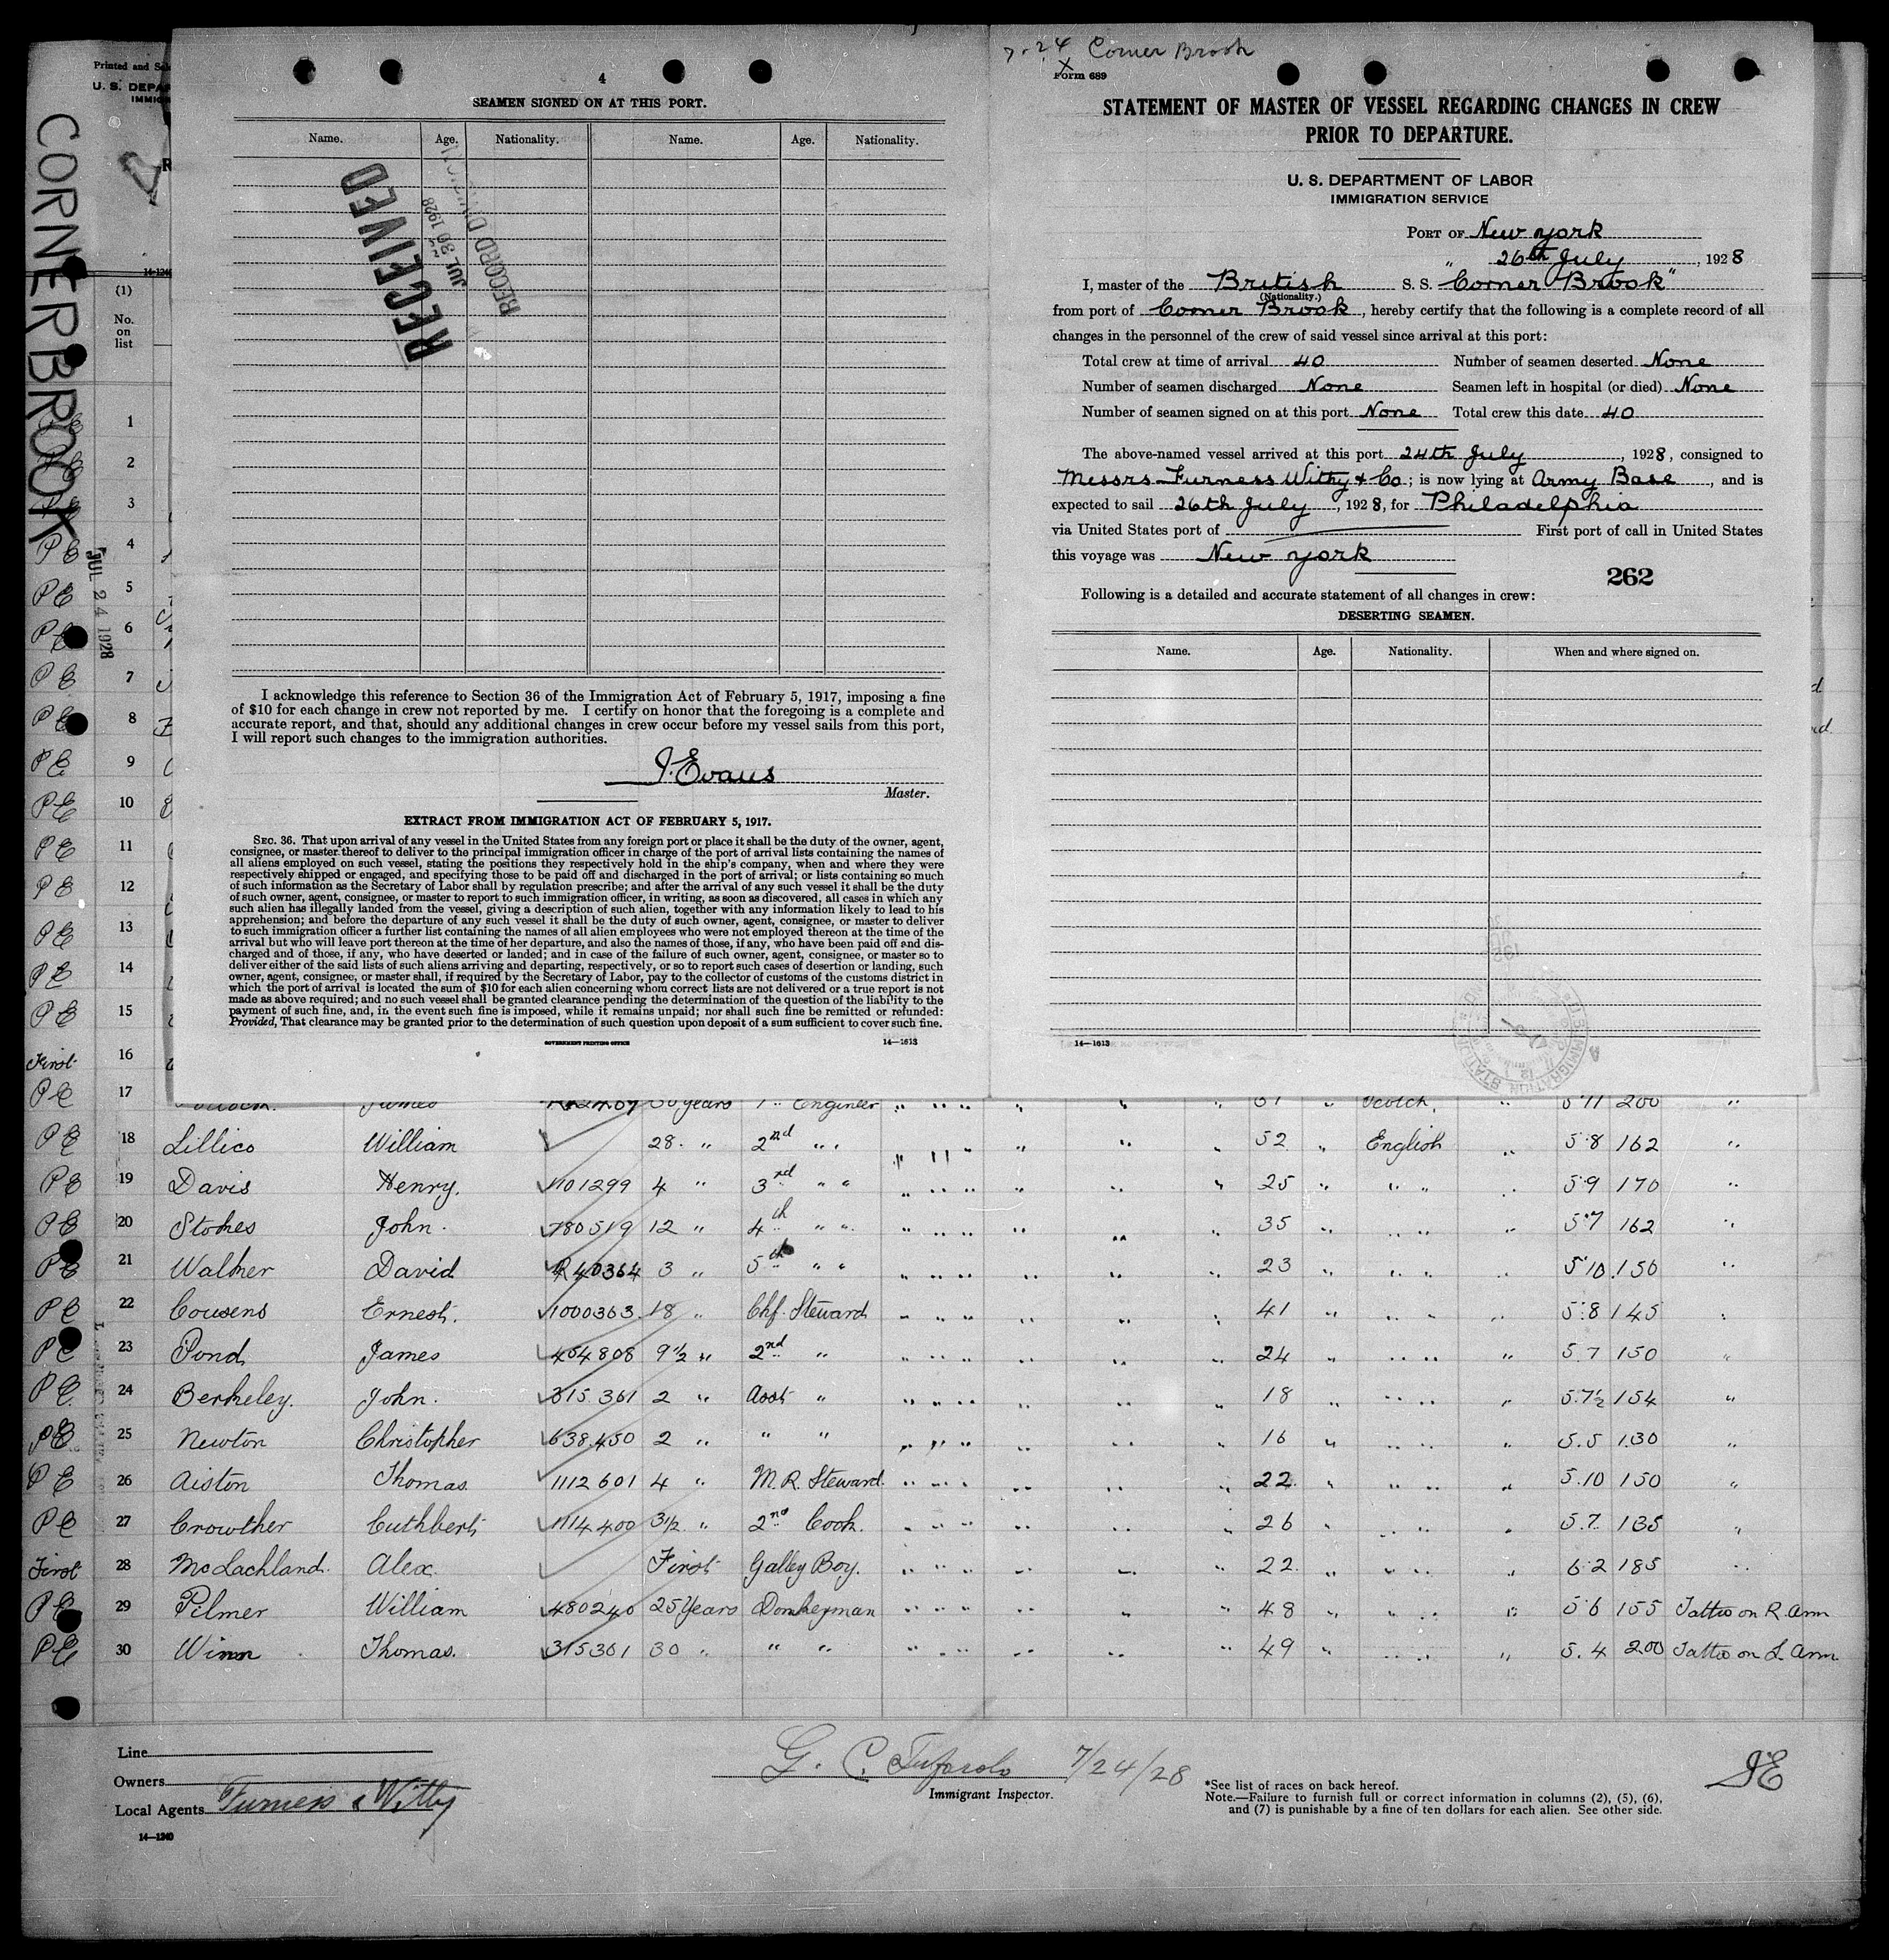 4
SEAMEN SIGNED ON AT THIS PORT.
Name. Age. Nationality. Name. Age. Nationality.
RECEIVED
JUL 30 1928
RECORD DIVISION
I acknowledge this reference to Section 36 of the Immigration Act of February 5, 1917, imposing a fine
of $10 for each change in crew not reported by me. I certify on honor that the foregoing is a complete and
accurate report, and that, should any additional changes in crew occur before my vessel sails from this port,
I will report such changes to the immigration authorities.
J. Evans
Master.
EXTRACT FROM IMMIGRATION ACT OF FEBRUARY 5, 1917.
SEC. 36. That upon arrival of any vessel in the United States from any foreign port or place it shall be the duty of the owner, agent,
consignee, or master thereof to deliver to the principal immigration officer in charge of the port of arrival lists containing the names of
all aliens employed on such vessel, stating the positions they respectively hold in the ship's company, when and where they were
respectively shipped or engaged, and specifying those to be paid off and discharged in the port of arrival; or lists containing so much
of such information as the Secretary of Labor shall by regulation prescribe; and after the arrival of any such vessel it shall be the duty
of such owner, agent, consignee, or master to report to such immigration officer, in writing, as soon as discovered, all cases in which any
such alien has illegally landed from the vessel, giving a description of such alien, together with any information likely to lead to his
apprehension; and before the departure of any such vessel it shall be the duty of such owner, agent, consignee, or master to deliver
to such immigration officer a further list containing the names of all alien employees who were not employed thereon at the time of the
arrival but who will leave port thereon at the time of her departure, and also the names of those, if any, who have been paid off and dis-
charged and of those, if any, who have deserted or landed; and in case of the failure of such owner, agent, consignee, or master so to
deliver either of the said lists of such aliens arriving and departing, respectively, or so to report such cases of desertion or landing, such
owner, agent, consignee, or master shall, if required by the Secretary of Labor, pay to the collector of customs of the customs district in
which the port of arrival is located the sum of $10 for each alien concerning whom correct lists are not delivered or a true report is not
made as above required; and no such vessel shall be granted clearance pending the determination of the question of the liability to the
payment of such fine, and, in the event such fine is imposed, while it remains unpaid; nor shall such fine be remitted or refunded:
Provided, That clearance may be granted prior to the determination of such question upon deposit of a sum sufficient to cover such fine.
GOVERNMENT PRINTING OFFICE 14—1613
7-24 Corner Brook
X
Form 689
STATEMENT OF MASTER OF VESSEL REGARDING CHANGES IN CREW
PRIOR TO DEPARTURE.
U. S. DEPARTMENT OF LABOR
IMMIGRATION SERVICE
PORT OF New York
" 26th July, 1928
I, master of the British S. S. "Corner Brook"
(Nationality.)
from port of Corner Brook, hereby certify that the following is a complete record of all
changes in the personnel of the crew of said vessel since arrival at this port:
Total crew at time of arrival 40 Number of seamen deserted None
Number of seamen discharged None Seamen left in hospital (or died) None
Number of seamen signed on at this port None Total crew this date 40
The above-named vessel arrived at this port 24th July, 1928, consigned to
Messrs Furness Withy & Co; is now lying at Army Base, and is
expected to sail 26th July, 1928, for Philadelphia
via United States port of First port of call in United States
this voyage was New York
262
Following is a detailed and accurate statement of all changes in crew:
DESERTING SEAMEN.
Name. Age. Nationality. When and where signed on.
14—1613
Printed and
U. S. DEPA
IMMIG
CORNER BROOK
14-1240
(1)
No.
on
list
JUL 24 1928
1
2
3
PE 4
PE 5
PE 6
PE 7
PE 8
PE 9
PE 10
PE 11
PE 12
PE 13
PE 14
PE 15
First 16
PE 17 James 30 years 1st Engineer " " " " " " 51 " Scotch. " 5'11 200 "
PE 18 Lillico William 28 " 2nd " " " " " " " " 52 " English " 5'8 162 "
PE 19 Davis Henry. 1101299 4 " 3rd " " " " " " " " 25 " " " " 5'9 170 "
PE 20 Stokes John. 780519 12 " 4th " " " " " " " " 35 " " " " 5'7 162 "
PE 21 Walker David R40364 3 " 5th " " " " " " " " 23 " " " " 5'10 150 "
PE 22 Cousens Ernest. 1000363 18 " Chf. Steward " " " " " " 41 " " " " 5'8 145 "
PE 23 Pond James 454808 9½ " 2nd " " " " " " " 24 " " " " 5.7 150 "
PE 24 Berkeley. John. 315.361 2 " Asst " " " " " " " 18 " " " " 5.7½ 154 "
PE 25 Newton Christopher 638.450 2 " " " " " " " " " 16 " " " " 5.5 130 "
PE 26 Aiston Thomas. 1112601 4 " M.R. Steward. " " " " " " 22 " " " " 5.10 150 "
PE 27 Crowther Cuthbert 1114400 3½ " 2nd Cook. " " " " " " 26 " " " " 5.7 135 "
First 28 McLachland. Alex. First Galley Boy. " " " " " " 22 " " " " 6.2 185 "
PE 29 Pilmer William 480240 25 Years Donkeyman " " " " " " 48 " " " " 5'6 155 Tattoo on R. Arm
PE 30 Winn Thomas. 315361 30 " " " " " " " " " 49 " " " " 5.4 200 Tattoo on L. Arm
Line
Owners
Local Agents Furness & Withy
14—1240
G. C. 7/24/28
Immigrant Inspector.
*See list of races on back hereof.
Note.—Failure to furnish full or correct information in columns (2), (5), (6),
and (7) is punishable by a fine of ten dollars for each alien. See other side.
JE